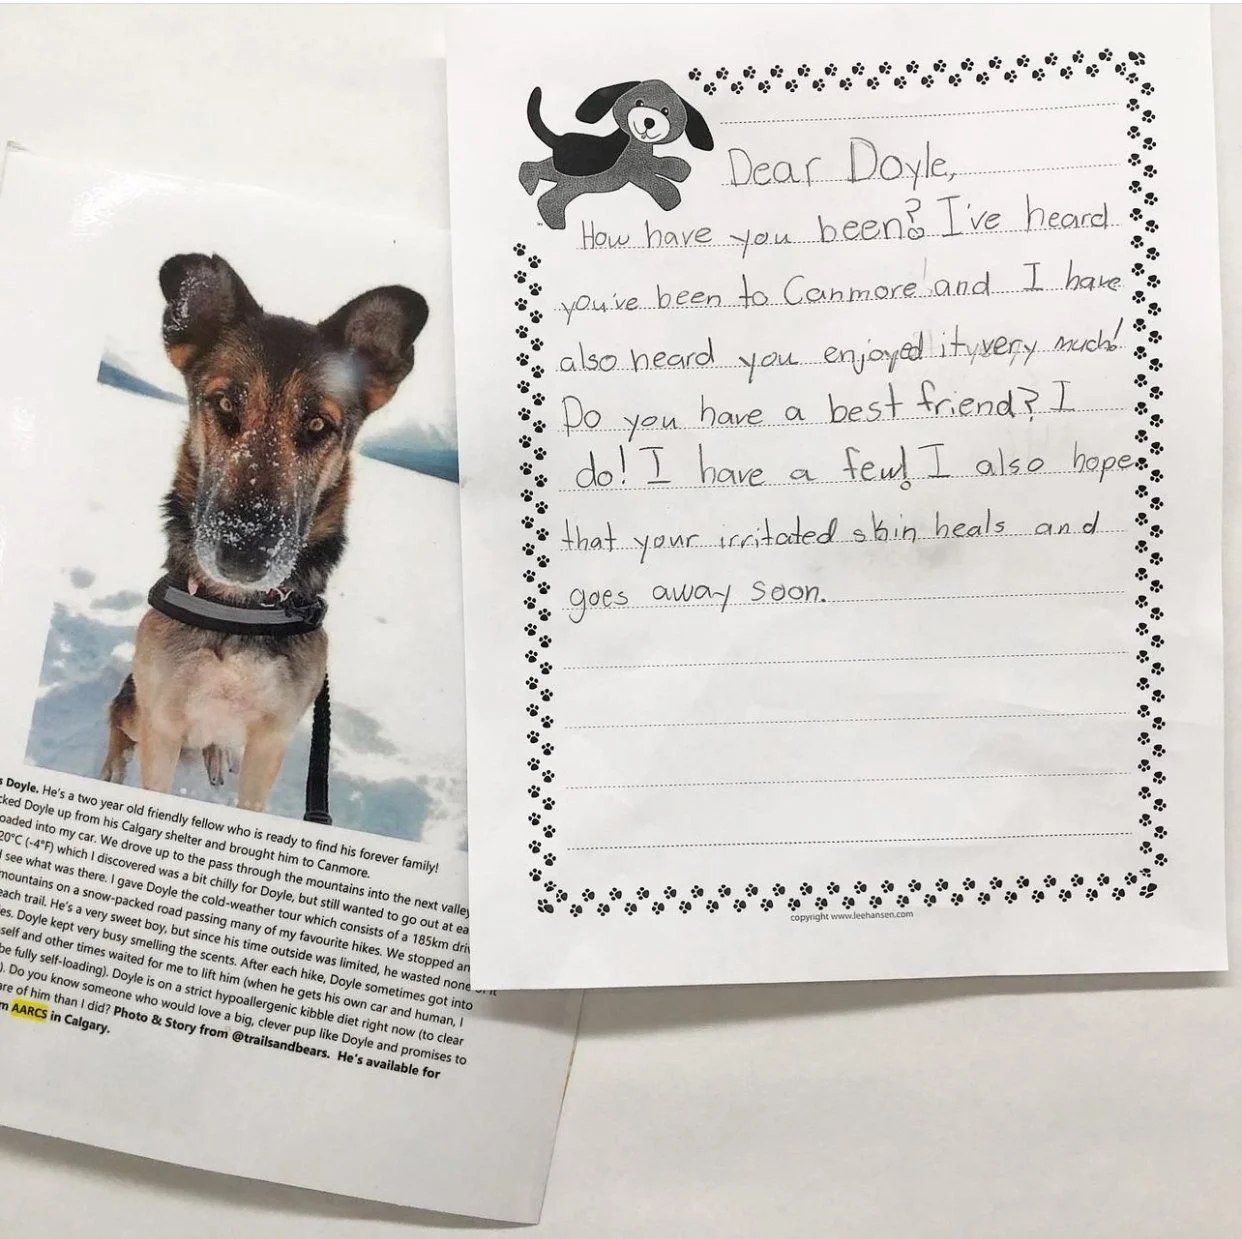 Dear Doyle,
How have you been? I've heard
you've been to Canmore and I have
also heard you enjoyed it very much!
Do you have a best friend? I
do! I have a few! I also hope
that your irritated skin heals and
goes away soon.
copyright www.leehansen.com
s Doyle. He's a two year old friendly fellow who is ready to find his forever family!
cked Doyle up from his Calgary shelter and brought him to Canmore.
oaded into my car. We drove up to the pass through the mountains into the next valley
20°C (-4°F) which I discovered was a bit chilly for Doyle, but still wanted to go out at ea
d see what was there. I gave Doyle the cold-weather tour which consists of a 185km driv
mountains on a snow-packed road passing many of my favourite hikes. We stopped an
each trail. He's a very sweet boy, but since his time outside was limited, he wasted none of it
es. Doyle kept very busy smelling the scents. After each hike, Doyle sometimes got into
self and other times waited for me to lift him (when he gets his own car and human, I
be fully self-loading). Doyle is on a strict hypoallergenic kibble diet right now (to clear
). Do you know someone who would love a big, clever pup like Doyle and promises to
are of him than I did? Photo & Story from @trailsandbears. He's available for
m AARCS in Calgary.